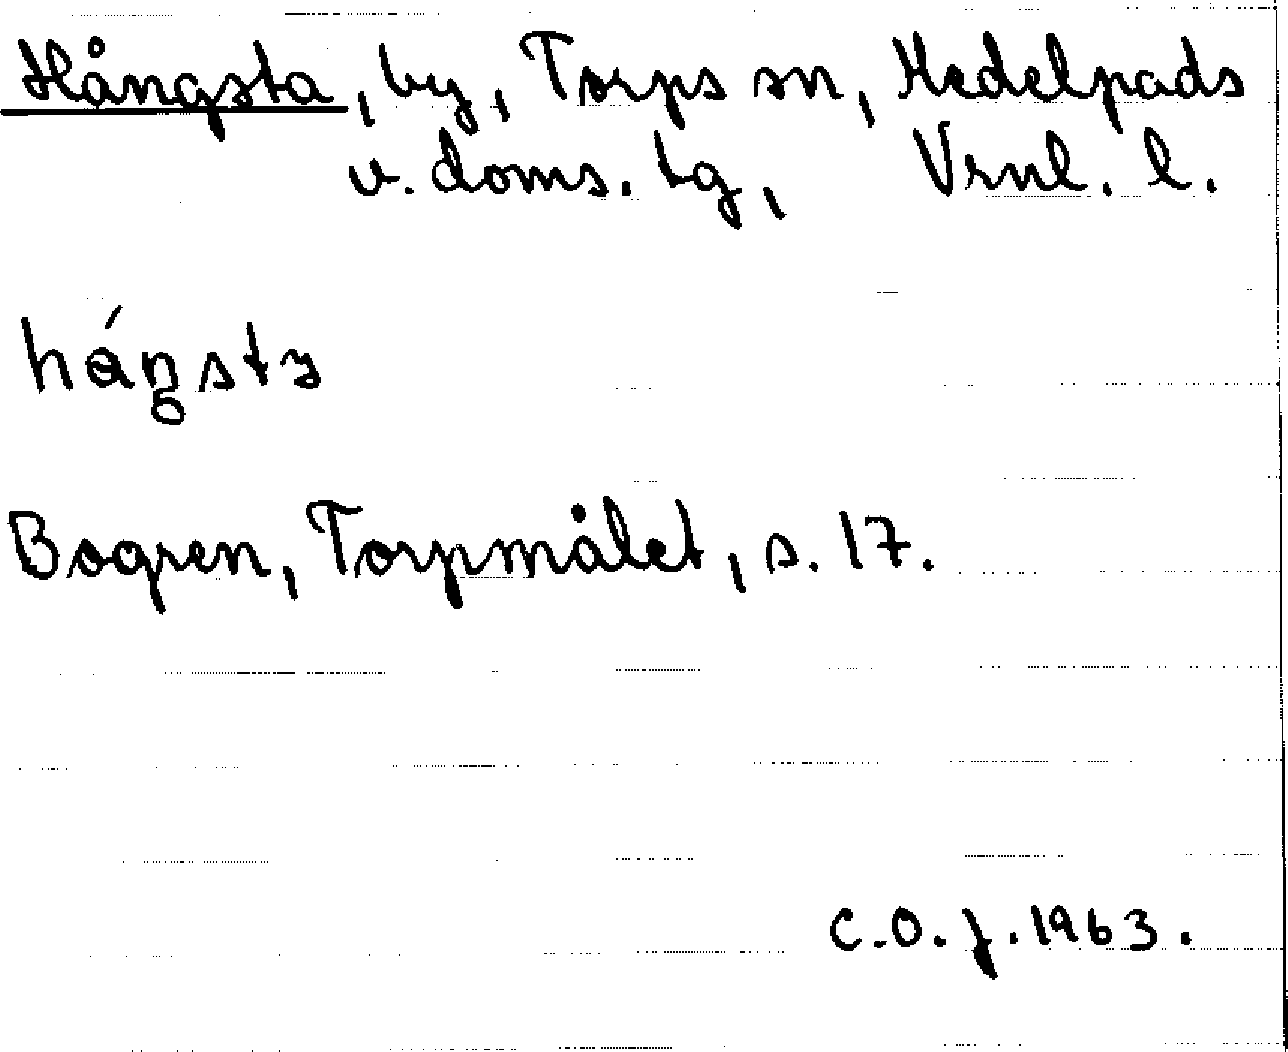 Hångsta, by, Torps sn, Medelpads
v. doms. tg, Vrnl. l.
hágsta
Bogren, Torpmålet, s. 17.
C.O.J. 1963.